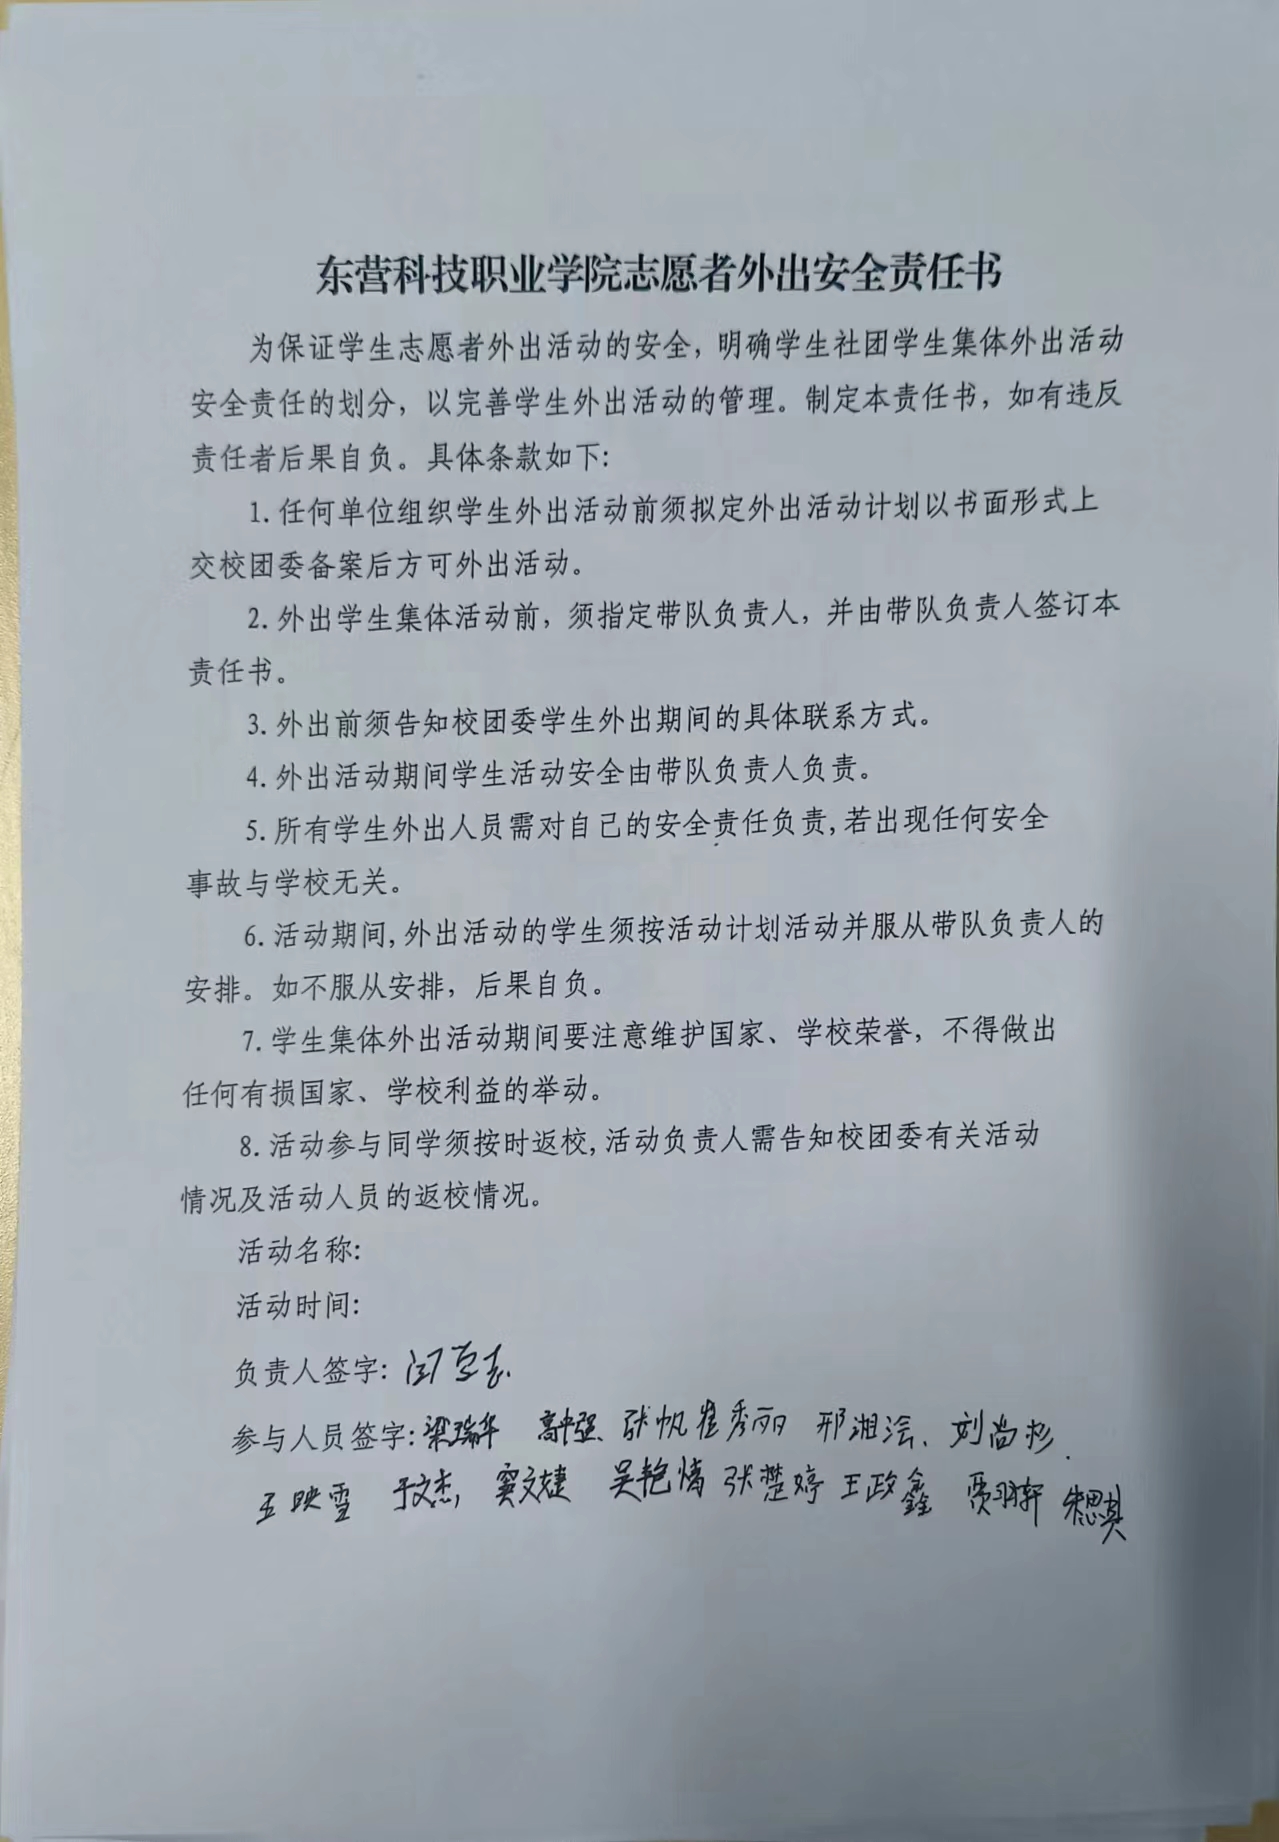 东营科技职业学院志愿者外出安全责任书
为保证学生志愿者外出活动的安全，明确学生社团学生集体外出活动
安全责任的划分，以完善学生外出活动的管理。制定本责任书，如有违反
责任者后果自负。具体条款如下:
1.任何单位组织学生外出活动前须拟定外出活动计划以书面形式上
交校团委备案后方可外出活动。
2.外出学生集体活动前，须指定带队负责人，并由带队负责人签订本
责任书。
3.外出前须告知校团委学生外出期间的具体联系方式。
4.外出活动期间学生活动安全由带队负责人负责。
5.所有学生外出人员需对自己的安全责任负责,若出现任何安全
事故与学校无关。
6.活动期间,外出活动的学生须按活动计划活动并服从带队负责人的
安排。如不服从安排，后果自负。
7.学生集体外出活动期间要注意维护国家、学校荣誉，不得做出
任何有损国家、学校利益的举动。
8.活动参与同学须按时返校,活动负责人需告知校团委有关活动
情况及活动人员的返校情况。
活动名称:
活动时间:
负责人签字:
参与人员签字:梁瑞华 张帆 崔秀丽 邢湘浍、刘尚杉.
王映雪 于文杰, 窦文婕 张楚婷 王政鑫 贾羽轩 朱思其